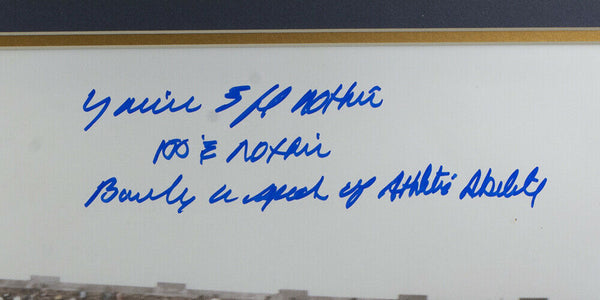 You're 5 ft nothin
100 & nothin
Barely a speck of Athletic Ability